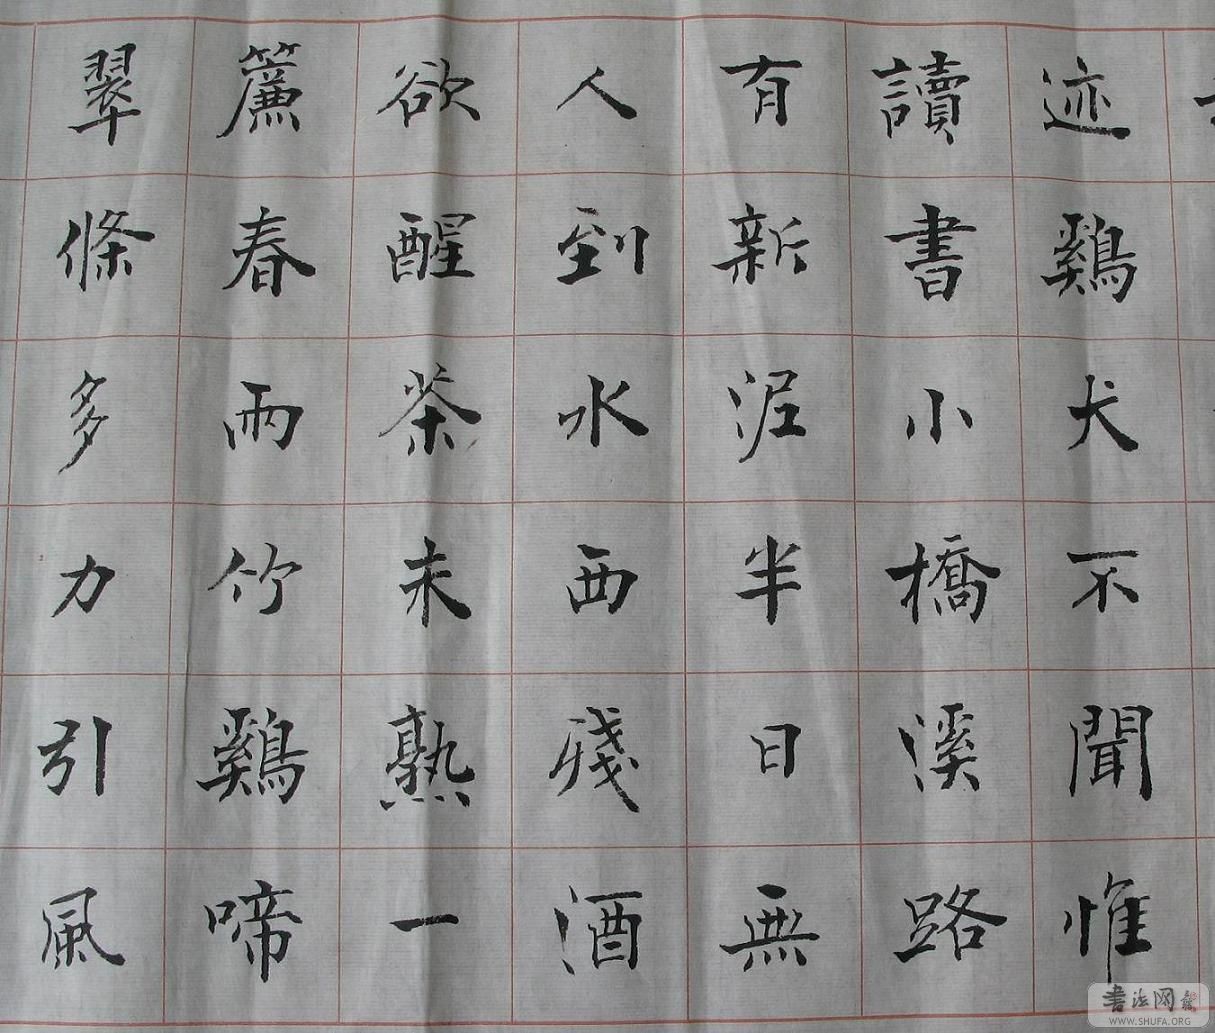 迹鷄犬不聞惟
讀書小橋溪路
有新泥半日無
人到水西殘酒
欲醒茶未熟一
簾春雨竹鷄啼
翠條多力引風
書法网
WWW.SHUFA.ORG